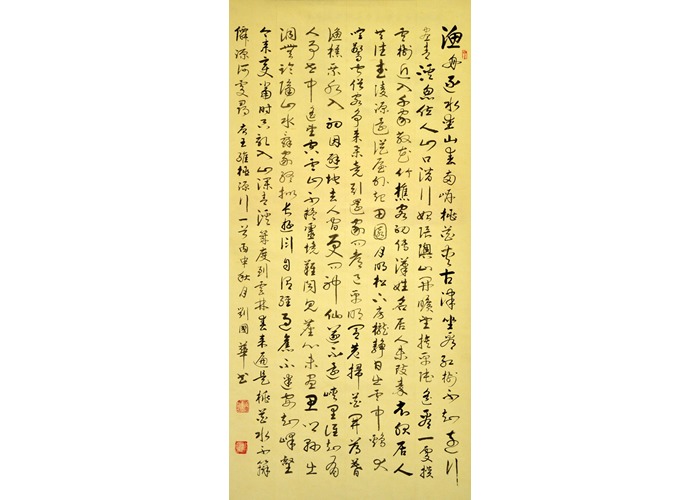 漁舟逐水愛山春兩岸桃花夾古津坐看紅樹不知遠行
盡青溪忽值人山口潛行始隈隩山開曠望旋平陸遙看一處攢
雲樹近入千家散花竹樵客初傳漢姓名居人未改秦衣服居人
共住武陵源還從物外起田園月明松下房櫳靜日出雲中鷄犬
喧驚聞俗客爭來集競引還家問都邑平明閭巷掃花開薄暮
漁樵乘水入初因避地去人間更問神仙遂不還峽里誰知有
人事世中遙望空雲山不疑靈境難聞見塵心未盡思鄉縣出
洞無論隔山水辭家終擬長游衍自謂經過舊不迷安知峰壑
今來變當時只記入山深青溪幾度到雲林春來遍是桃花水不辨
仙源何處尋 右王維桃源行一首丙申秋月劉國華書